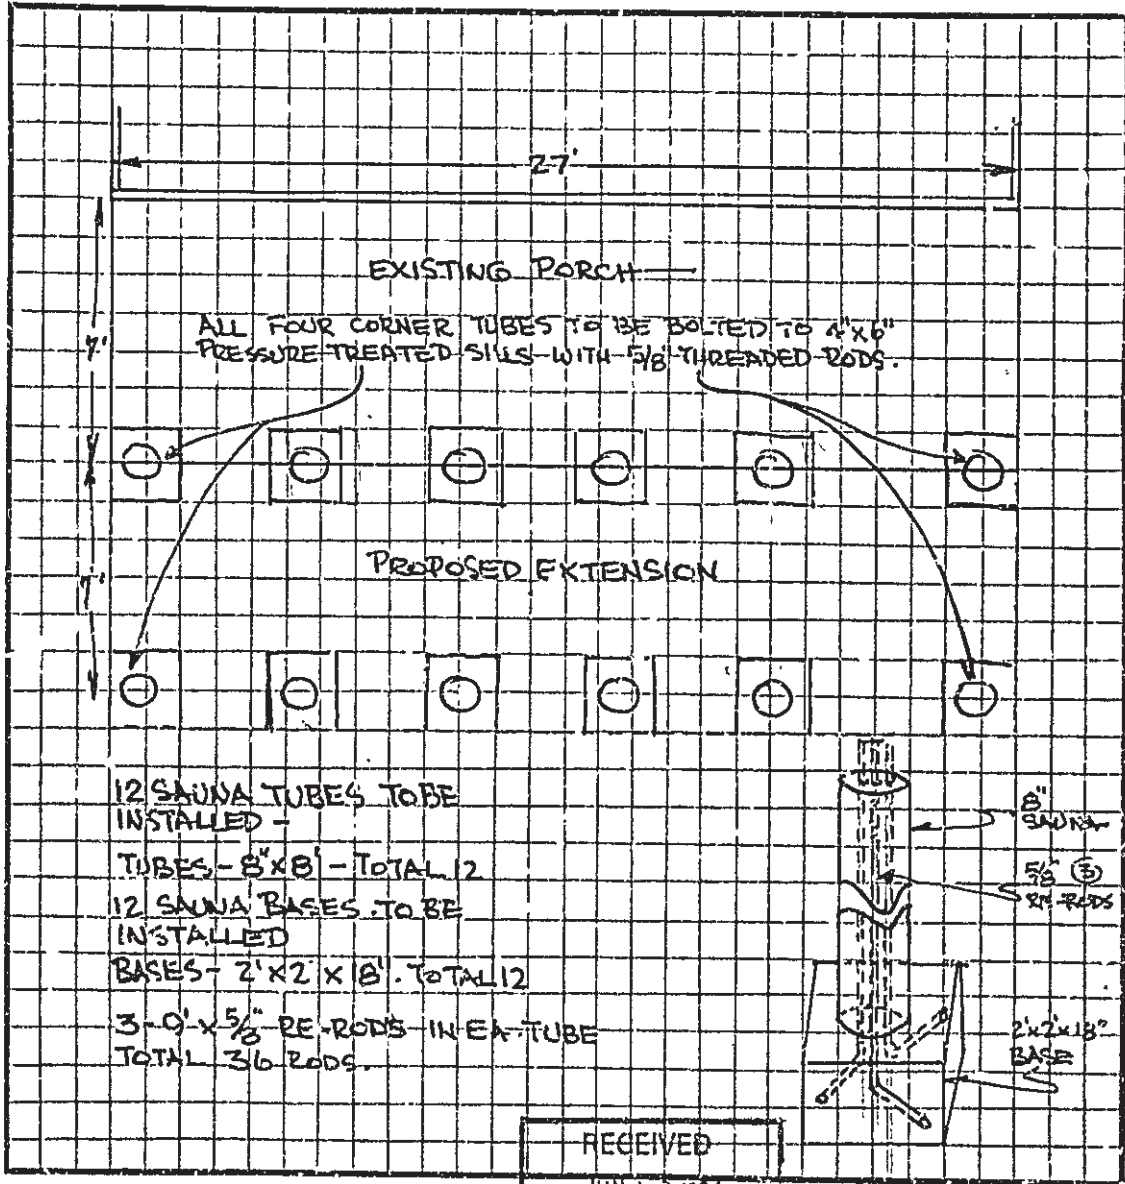 27'
EXISTING PORCH
ALL FOUR CORNER TUBES TO BE BOLTED TO 4"X6"
PRESSURE TREATED SILLS WITH 5/8" THREADED RODS.
7'
PROPOSED EXTENSION
7'
12 SAUNA TUBES TO BE
INSTALLED -
TUBES - 8"X8' - TOTAL 12
12 SAUNA BASES TO BE
INSTALLED
BASES - 2'X2'X18". TOTAL 12
3-9'X5/8" RE-RODS IN EA TUBE
TOTAL 36 RODS.
8"
SAUNA
5/8" (3)
RE-RODS
2'x2'x18"
BASE
RECEIVED